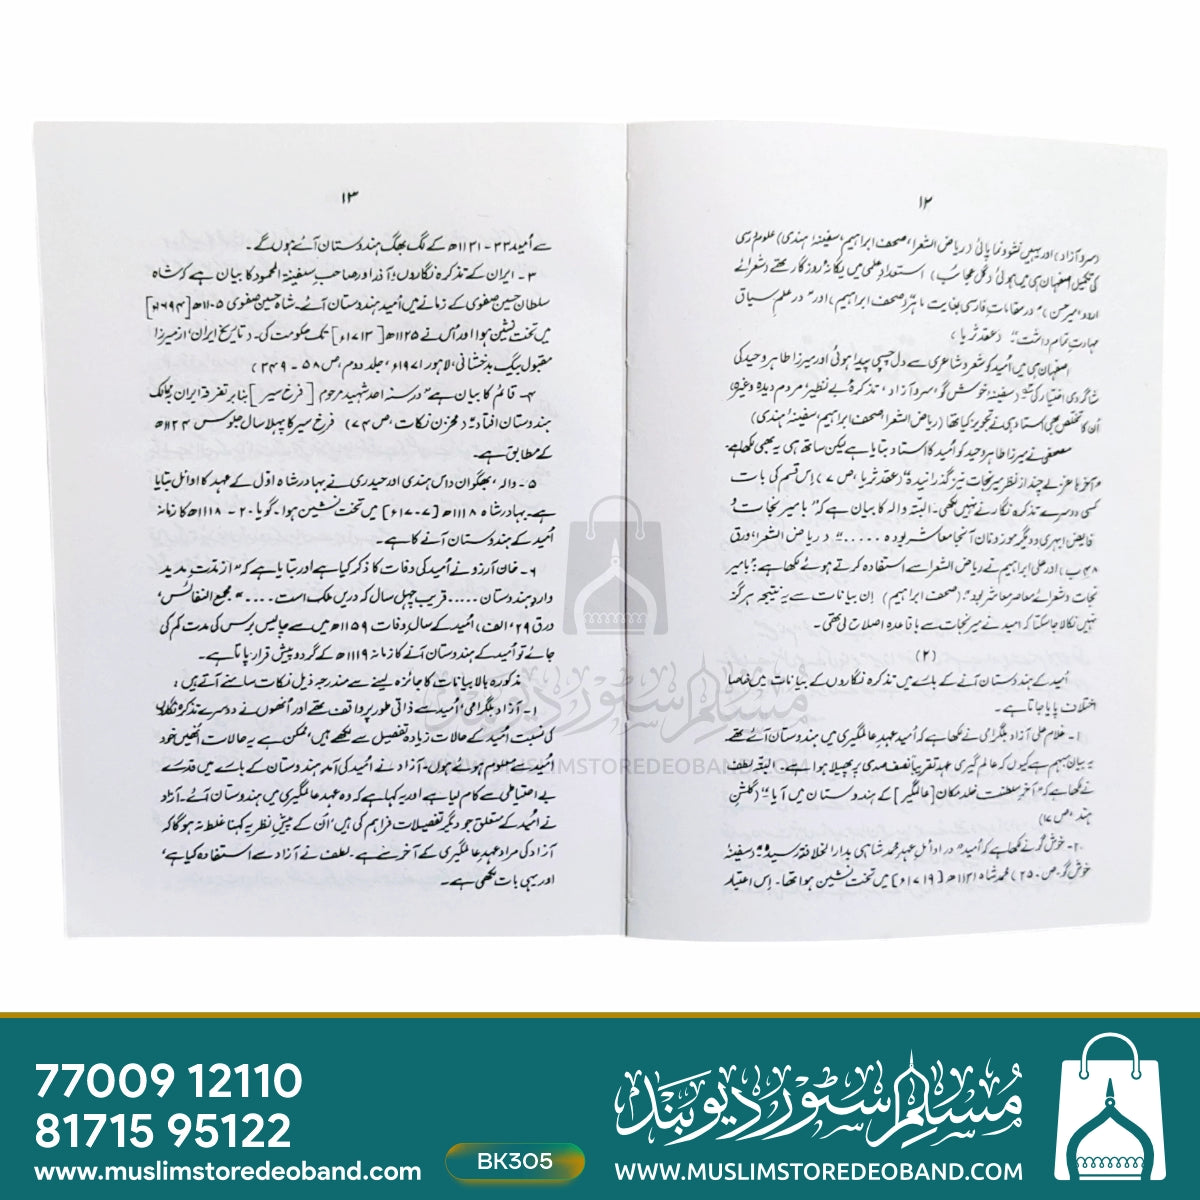 ۱۲
(سرو آزاد) اور یہیں نشوونما پائی (ریاض الشعرا، صحف ابراہیم، سفینۂ ہندی) علوم رسمی
کی تکمیل اصفہان ہی میں ہوئی (گل عجائب) استعدادِ علمی میں یگانۂ روزگار تھے (شعرائے
اردو، میر حسن) "در مقاماتِ فارسی بغایت ماہر (صحف ابراہیم) اور "در علم سیاق
مہارتِ تمام داشت" (عقد ثریا)
اصفہان ہی میں اُمید کو شعر و شاعری سے دل چسپی پیدا ہوئی اور میرزا طاہر وحید کی
شاگردی اختیار کی (سفینۂ خوش گو، سرو آزاد، تذکرۂ بے نظیر، مردم دیدہ وغیرہ)
اُن کا تخلص بھی استاد ہی نے تجویز کیا تھا (ریاض الشعرا، صحف ابراہیم، سفینۂ ہندی)
مصحفی نے میرزا طاہر وحید کو اُمید کا استاد بتایا ہے لیکن ساتھ ہی یہ بھی لکھا ہے۔
چند از نظر میر نجات نیز گذرانیدہ" (عقد ثریا، ص ۷) اِس قسم کی بات
کسی دوسرے تذکرہ نگار نے نہیں لکھی۔ البتہ والہ کا بیان ہے کہ "با میر نجات و
فایض ابہری و دیگر موزونان آنجا معاشر بوده ....." (ریاض الشعرا، ورق
۴۸ ب) اور علی ابراہیم نے ریاض الشعرا سے استفادہ کرتے ہوئے لکھا ہے: "با میر
نجات و شعرائے معاصر معاشر بود" (صحف ابراہیم) اِن بیانات سے یہ نتیجہ ہرگز
نہیں نکالا جا سکتا کہ اُمید نے میر نجات سے باقاعدہ اصلاح لی تھی۔
(۲)
اُمید کے ہندوستان آنے کے بارے میں تذکرہ نگاروں کے بیانات میں خاصا
اختلاف پایا جاتا ہے۔
۱۔ غلام علی آزاد بلگرامی نے لکھا ہے کہ اُمید عہدِ عالمگیری میں ہندوستان آئے تھے
یہ بیان مبہم ہے کیوں کہ عالم گیری عہد تقریباً نصف صدی پر پھیلا ہوا ہے۔ البتہ لطف
نے لکھا ہے کہ "آخرِ سلطنت خلد مکان [عالمگیر] کے ہندوستان میں آیا" (گلشنِ
ہند، ص ۱۷)
۲۔ خوش گو نے لکھا ہے کہ اُمید "در اوائلِ عہد محمد شاہی بدار الخلافۃ رسید" (سفینۂ
خوش گو، ص ۲۵) محمد شاہ ۱۱۳۱ھ [۱۷۱۹ء] میں تخت نشین ہوا تھا۔ اِس اعتبار
۱۳
سے اُمید ۳۲ - ۱۱۳۱ھ کے لگ بھگ ہندوستان آئے ہوں گے۔
۳۔ ایران کے تذکرہ نگاروں، آذر اور صاحبِ سفینۃ المحمود کا بیان ہے کہ شاہ
سلطان حسین صفوی کے زمانے میں اُمید ہندوستان آئے۔ شاہ حسین صفوی ۱۱۰۵ھ [۱۶۹۴ء]
میں تخت نشین ہوا اور اُس نے ۱۱۲۵ھ [۱۷۱۳ء] تک حکومت کی۔ (تاریخ ایران، از میرزا
مقبول بیگ بدخشانی، لاہور ۱۹۷۱ء، جلد دوم، ص ۵۸ - ۳۴۹)
۴۔ قائم کا بیان ہے "در سنہ احد شہید مرحوم [فرخ سیر] بنا بر تفرقۂ ایران بممالک
ہندوستان افتاد" (مخزنِ نکات، ص ۷۴) فرخ سیر کا پہلا سال جلوس ۱۱۲۴ھ
کے مطابق ہے۔
۵۔ والہ، بھگوان داس ہندی اور حیدری نے بہادر شاہ اوّل کے عہد کا اوائل بتایا
ہے۔ بہادر شاہ ۱۱۱۸ھ [۱۷۰۷ء] میں تخت نشین ہوا۔ گویا ۲۰ - ۱۱۱۸ھ کا زمانہ
اُمید کے ہندوستان آنے کا ہے۔
۶۔ خان آرزو نے اُمید کی وفات کا ذکر کیا ہے اور بتایا ہے کہ "از مدتِ مدید
واردِ ہندوستان ..... قریب چہل سال کہ دریں ملک است ....." (مجمع النفائس،
ورق ۲۹، الف) اُمید کے سالِ وفات ۱۱۵۹ھ میں سے چالیس برس کی مدت کم کی
جائے تو اُمید کے ہندوستان آنے کا زمانہ ۱۱۱۹ھ کے گرد و پیش قرار پاتا ہے۔
مذکورہ بالا بیانات کا جائزہ لینے سے مندرجہ ذیل نکات سامنے آتے ہیں:
۱۔ آزاد بلگرامی، اُمید سے ذاتی طور پر واقف تھے اور اُنھوں نے دوسرے تذکرہ نگاروں
کی نسبت اُمید کے حالات زیادہ تفصیل سے لکھے ہیں، ممکن ہے یہ حالات اُنھیں خود
اُمید سے معلوم ہوئے ہوں، آزاد نے اُمید کی آمدِ ہندوستان کے بارے میں قدرے
بے احتیاطی سے کام لیا ہے اور یہ کہا ہے کہ وہ عہد عالمگیری میں ہندوستان آئے۔ آزاد
نے اُمید کے متعلق جو دیگر تفصیلات فراہم کی ہیں، اُن کے پیشِ نظر یہ کہنا غلط نہ ہوگا کہ
آزاد کی مراد عہدِ عالمگیری کے آخر سے ہے۔ لطف نے آزاد سے استفادہ کیا ہے،
اور یہی بات لکھی ہے۔
مسلم سٹور دیوبند
WWW.MUSLIMSTOREDEOBAND.COM
77009 12110
81715 95122
www.muslimstoredeoband.com
BK305
مسلم سٹور دیوبند
WWW.MUSLIMSTOREDEOBAND.COM